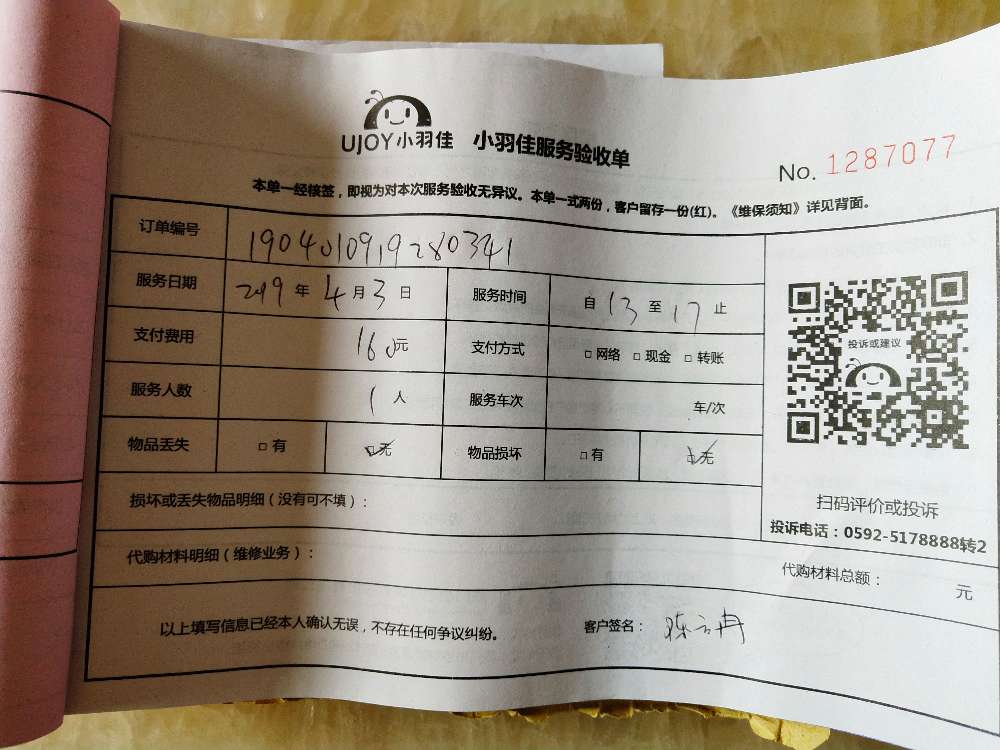 UJOY小羽佳 小羽佳服务验收单
No. 1287077
本单一经核签，即视为对本次服务验收无异议。本单一式两份，客户留存一份(红)。《维保须知》详见背面。
订单编号 1904010919280341
服务日期 2019年4月3日 服务时间 自13至17止
支付费用 160元 支付方式 □网络 □现金 □转账
投诉或建议
服务人数 1人 服务车次 车/次
物品丢失 □有 ☑无 物品损坏 □有 ☑无
扫码评价或投诉
投诉电话：0592-5178888转2
损坏或丢失物品明细（没有可不填）：
代购材料明细（维修业务）： 代购材料总额： 元
以上填写信息已经本人确认无误，不存在任何争议纠纷。 客户签名：陈云冉